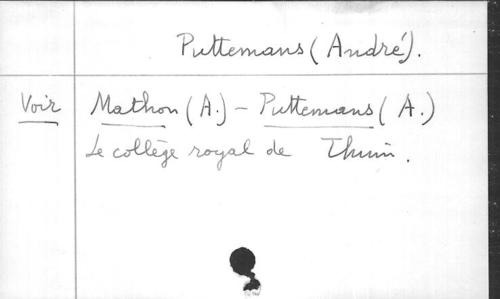 Puttemans (André).
Voir Mathon (A.) - Puttemans (A.)
Le collège royal de Thuin.